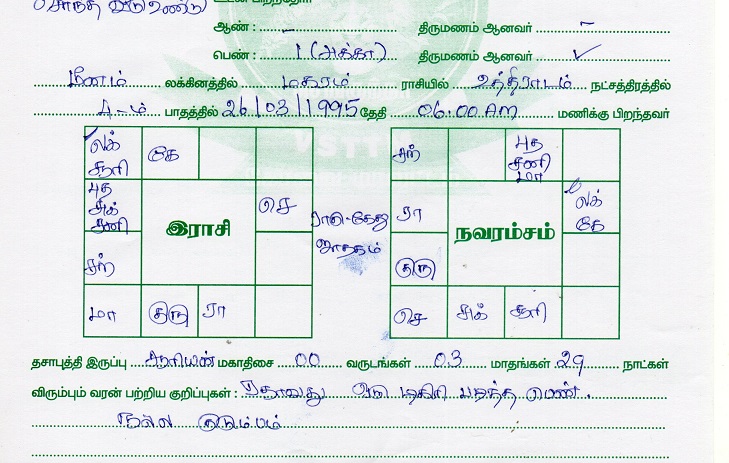 சொந்த வீடு உண்டு
ஆண் : – திருமணம் ஆனவர் –
பெண் : 1 (அக்கா) திருமணம் ஆனவர் ✓
மீனம் லக்கினத்தில் மகரம் ராசியில் உத்திராடம் நட்சத்திரத்தில்
4-ம் பாதத்தில் 26/03/1995 தேதி 06.00 Am மணிக்கு பிறந்தவர்
லக் சூரி கே
புத சுக் சனி இராசி செ
சந்
மா குரு ரா
ராகு-கேது ஜாதகம்
சந் புத சனி மா
ரா நவரம்சம் லக் கே
குரு
செ சுக் சூரி
தசாபுத்தி இருப்பு சூரியன் மகாதிசை 00 வருடங்கள் 03 மாதங்கள் 29 நாட்கள்
விரும்பும் வரன் பற்றிய குறிப்புகள் : ஏதாவது ஒரு டிகிரி படித்த பெண்.
நல்ல குடும்பம்